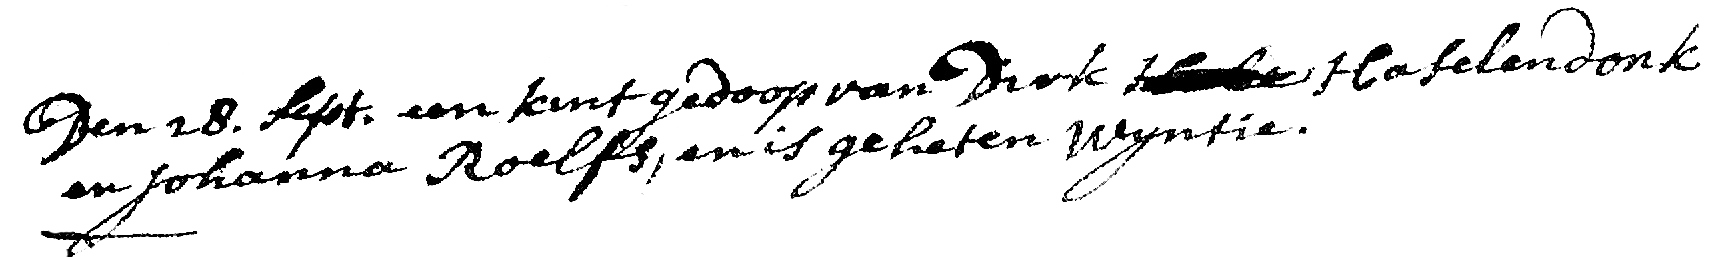 Den 28. Sept. een kint gedoopt van Dirk Haselendonk
en Johanna Roelfs, en is geheten Wyntie.